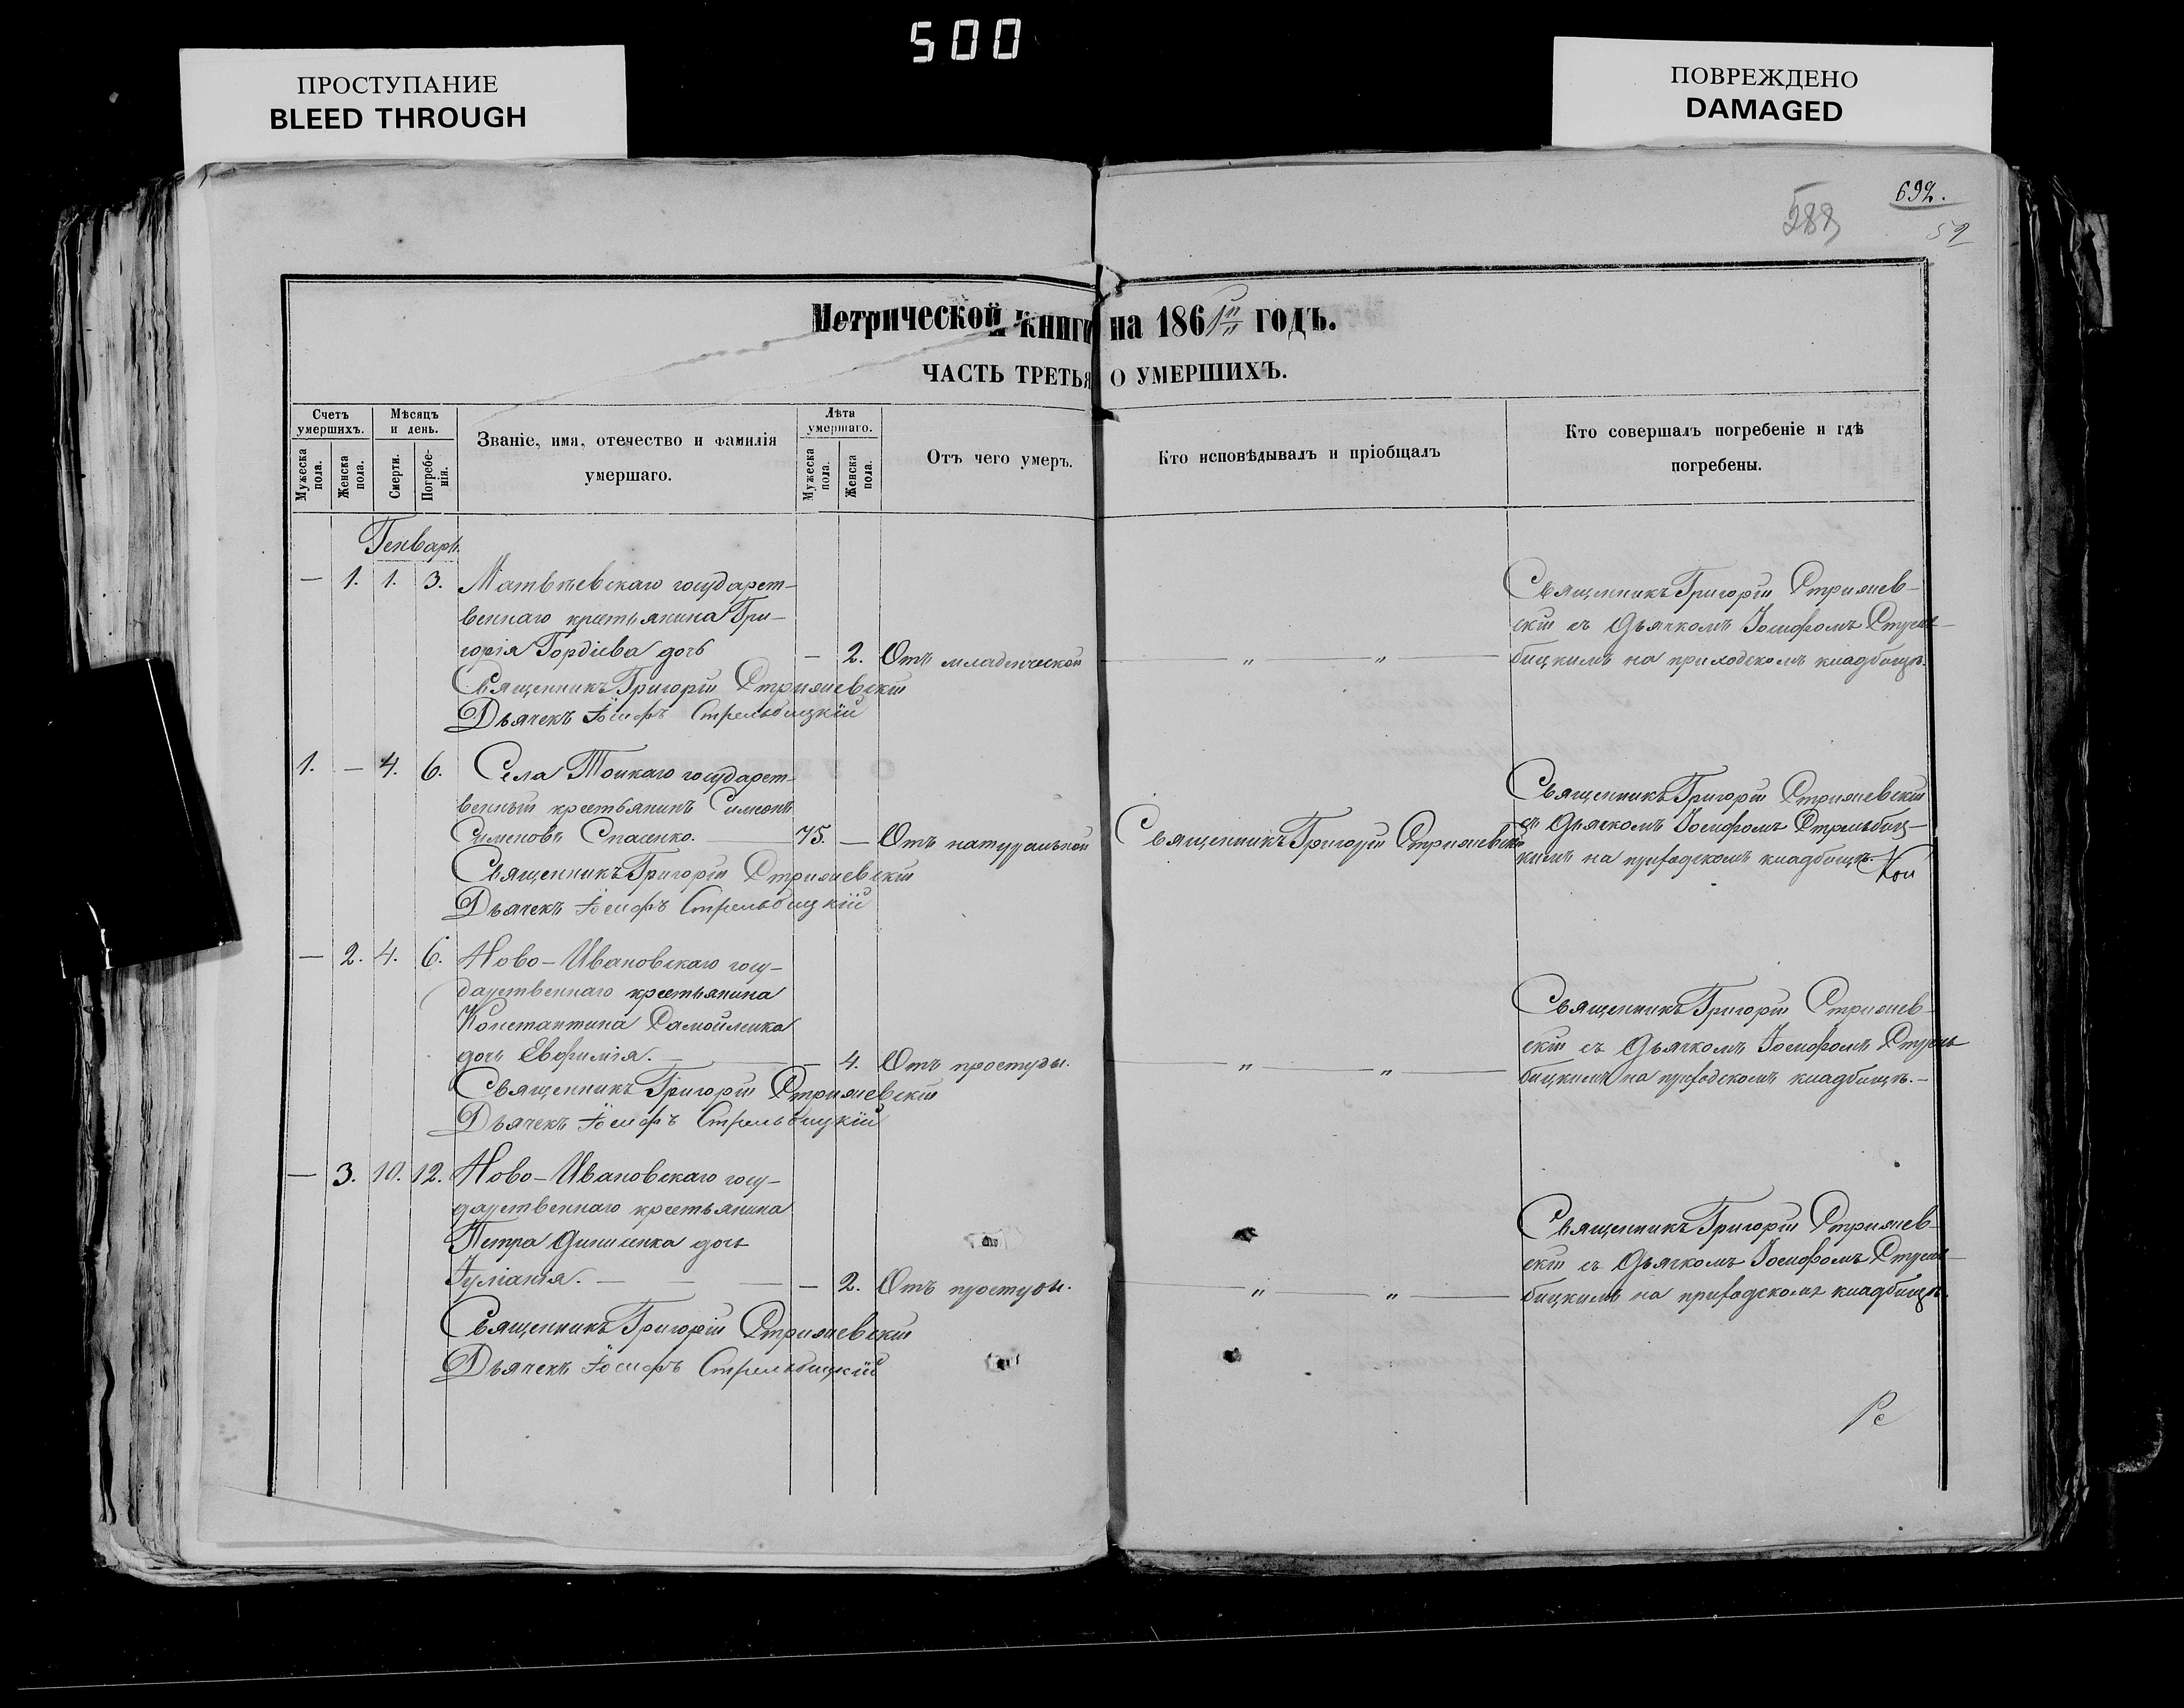 500
ПРОСТУПАНИЕ
BLEED THROUGH
ПОВРЕЖДЕНО
DAMAGED
692.
Метрической книги на 1861 годъ.
ЧАСТЬ ТРЕТЬЯ О УМЕРШИХЪ.
Счетъ умершихъ.
Мужеска пола.
Женска пола.
Мѣсяцъ и день.
Смерти.
Погребе-нія.
Званіе, имя, отечество и фамилія
умершаго.
Лѣта умершаго.
Мужеска пола.
Женска пола.
Отъ чего умеръ.
Кто исповѣдывалъ и пріобщалъ
Кто совершалъ погребеніе и гдѣ
погребены.
Генварь
— 1. 1. 3. Матвѣевскаго государст-
веннаго крестьянина Гри-
горія Гордіева дочь — 2. Отъ младенческой — „ — „ —
Священникъ Григорій
Дьячекъ Іосифъ Стрельбицкій
Священникъ Григорій
скій съ Дьячкомъ Іосифомъ Стрель-
бицкимъ на приходскомъ кладбищѣ.
1. — 4. 6. Села государст-
венный крестьянинъ Симеонъ
Сименовъ Спасенко. — 75. — Отъ натуральной Священникъ Григорій
Священникъ Григорій
Дьячекъ Іосифъ Стрельбицкій
Священникъ Григорій
съ Дьячкомъ Іосифомъ Стрельбиц-
кимъ на приходскомъ кладбищѣ.
— 2. 4. 6. Ново-Ивановскаго госу-
дарственнаго крестьянина
Константина Самойленка
дочь Евфимія. — — 4. Отъ простуды. — „ — „ —
Священникъ Григорій
Дьячекъ Іосифъ Стрельбицкій
Священникъ Григорій
скій съ Дьячкомъ Іосифомъ Стрель
бицкимъ на приходскомъ кладбищѣ.—
— 3. 10. 12. Ново-Ивановскаго госу-
дарственнаго крестьянина
Петра дочь
Іуліанія. — — — — 2. Отъ простуды. — „ — „ —
Священникъ Григорій
Дьячекъ Іосифъ Стрельбицкій
Священникъ Григорій
скій съ Дьячкомъ Іосифомъ Стрель-
бицкимъ на приходскомъ кладбищѣ.